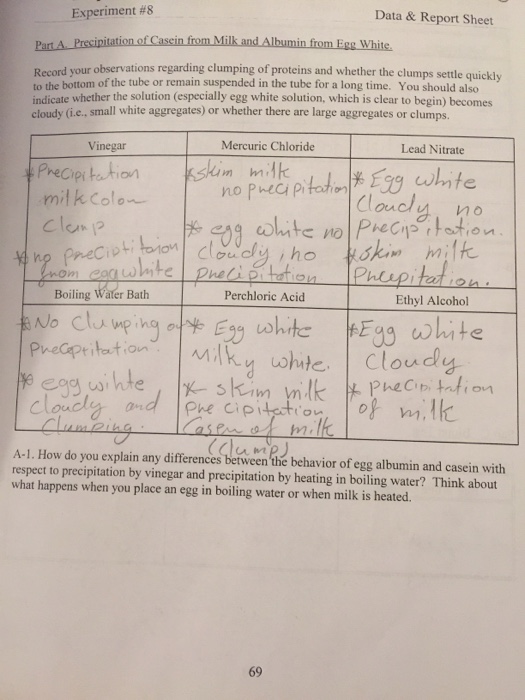 Experiment #8
Data & Report Sheet
Part A. Precipitation of Casein from Milk and Albumin from Egg White.
Record your observations regarding clumping of proteins and whether the clumps settle quickly
to the bottom of the tube or remain suspended in the tube for a long time. You should also
indicate whether the solution (especially egg white solution, which is clear to begin) becomes
cloudy (i.e., small white aggregates) or whether there are large aggregates or clumps.
Vinegar
* Precipitation
milk colou
clump
* no preciptitaion
from egg white
Mercuric Chloride
* skim milk
no precipitation
* egg white no
cloudy, no
precipitation
Lead Nitrate
* Egg white
Cloudy no
Precipitation.
* skim milk
Precpitation.
Boiling Water Bath
* No Clumping or
Precepritation.
* egg wihte
cloudy and
Clumping.
Perchloric Acid
* Egg white
Milky white.
* skim milk
Precipitation
Casen of milk
(Clump)
Ethyl Alcohol
* Egg white
Cloudy
* precipitation
of milk
A-1. How do you explain any differences between the behavior of egg albumin and casein with
respect to precipitation by vinegar and precipitation by heating in boiling water? Think about
what happens when you place an egg in boiling water or when milk is heated.
69